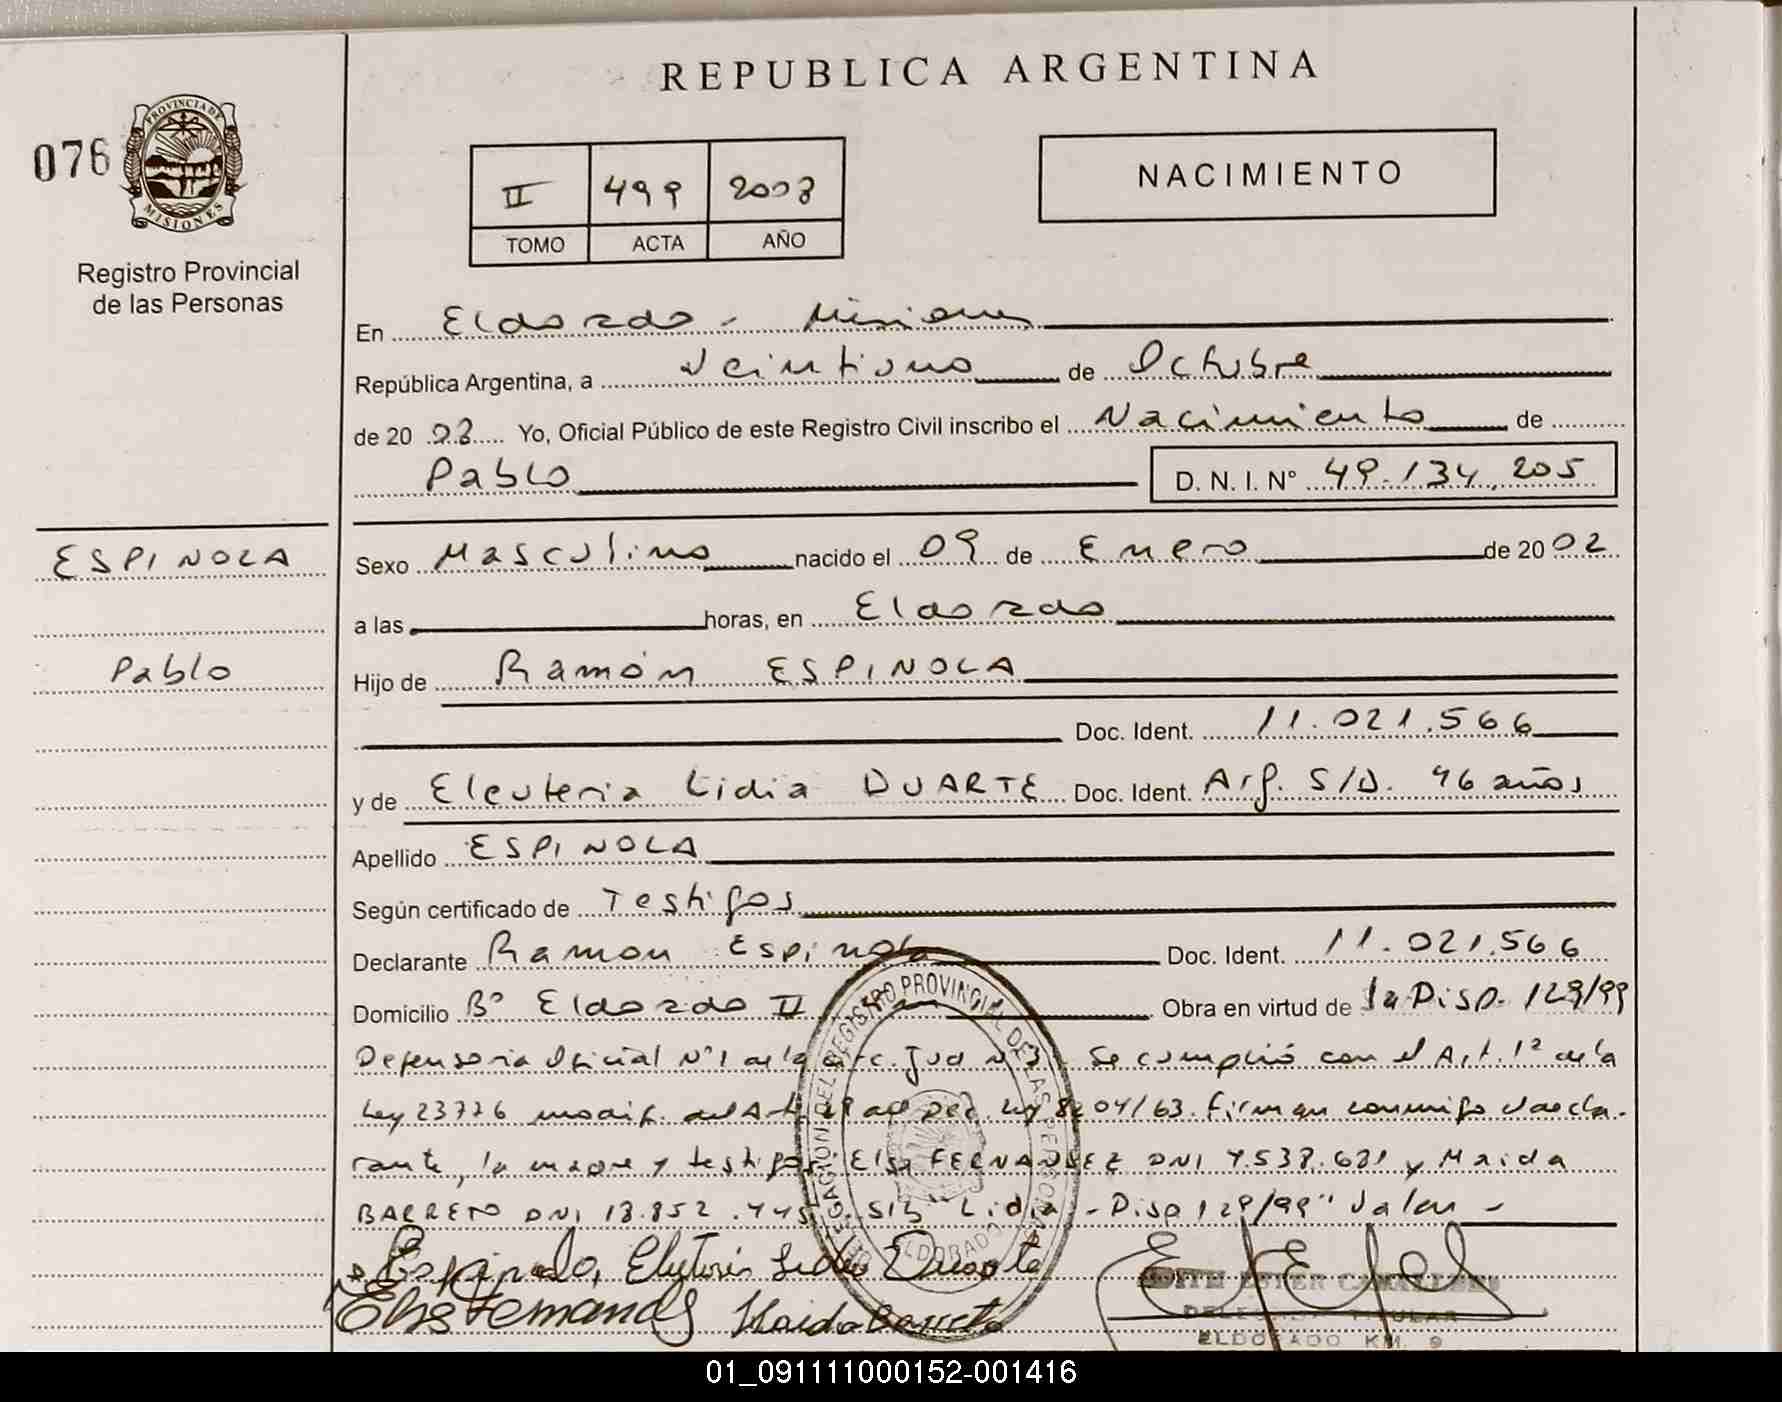 REPUBLICA ARGENTINA
076
PROVINCIA DE
MISIONES
Registro Provincial
de las Personas
II 499 2008
TOMO ACTA AÑO
NACIMIENTO
En Eldorado - Misiones
República Argentina, a Veintiuno de Octubre
de 20 08 Yo, Oficial Público de este Registro Civil inscribo el Nacimiento de
Pablo D. N. I. Nº 49.134.205
ESPINOLA
Sexo Masculino nacido el 09 de Enero de 20 02
a las horas, en Eldorado
Pablo
Hijo de Ramón ESPINOLA
Doc. Ident. 11.021.566
y de Eleuteria Lidia DUARTE Doc. Ident. Arg. S/D. 46 años
Apellido ESPINOLA
Según certificado de Testigos
Declarante Ramon Espinola Doc. Ident. 11.021.566
Domicilio Bº Eldorado II Obra en virtud de la Disp. 129/99
Defensoria Oficial Nº1 de la Jud Se cumplió con el Art. 1º de la
Ley 23776 modif. del Art Dec. Ley 8204/63. Firman conmigo el decla-
rante, la madre y testigos Elsa FERNANDEZ DNI y Maida
BARRETO DNI 18.852.445 S/b "Lidia - Disp 129/99" Valen -
Espinola, Eleuteria Lidia Duarte
Elsa Fernandez Maida Barreto
DELEGACION DEL REGISTRO PROVINCIAL DE LAS PERSONAS
ELDORADO
EDITH ESTER
DELEGADA TITULAR
ELDORADO KM. 9
01_091111000152-001416